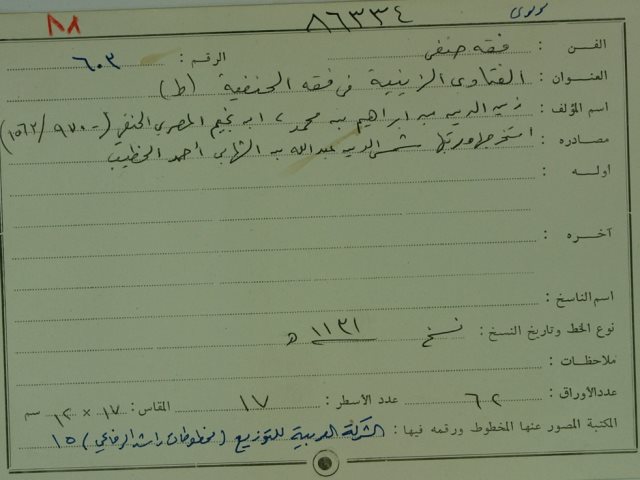 ٨٨ ٨٦٣٣٤
الفــن : فقه حنفي الرقم : ٦٠٣
العنـوان : الفتاوى الزينية في فقه الحنفية (ط)
اسم المؤلف : زين الدين بن ابراهيم بن محمد، ابن نجيم المصري الحنفي (- ٩٧٠ / ١٥٦٢)
مصادره : استخرجها ورتبها شمس الدين عبدالله بن الشهابي أحمد الخطيب
اولــه :
آخـره :
اسم الناسخ :
نوع الخط وتاريخ النسخ : نسخ ١١٣١ هـ
ملاحظـات :
عدد الأوراق : ٦٢ عدد الأسطر : ١٧ المقاس : ١٧ × ١٢ سم
المكتبة المصور عنها المخطوط ورقمه فيها : الشركة العربية للتوزيع (مخطوطات راشد الرفاعي) ١٥